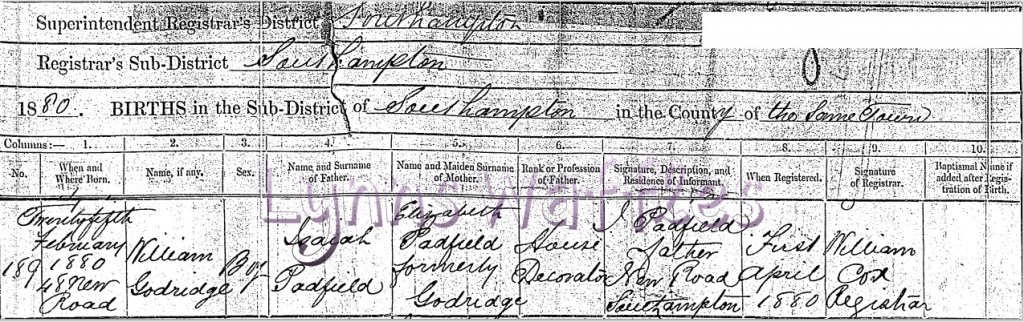 Superintendent Registrar's District Southampton
Registrar's Sub-District Southampton
1880. BIRTHS in the Sub-District of Southampton in the County of the Same Town
Columns:— 1. 2. 3. 4. 5. 6. 7. 8. 9. 10.
No. When and Where Born. Name, if any. Sex. Name and Surname of Father. Name and Maiden Surname of Mother. Rank or Profession of Father. Signature, Description, and Residence of Informant. When Registered. Signature of Registrar. Baptismal Name if added after Registration of Birth.
Lynns Waifties
189 Twenty fifth February 1880 48 New Road
William Godridge
Boy
Isaiah Padfield
Elizabeth Padfield formerly Godridge
House Decorator
I Padfield father New Road Southampton
First April 1880
William Cox Registrar